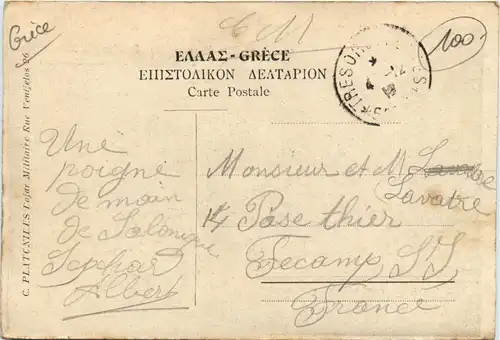 Grèce
100
ΕΛΛΑΣ - GRÈCE
ΕΠΙΣΤΟΛΙΚΟΝ ΔΕΛΤΑΡΙΟΝ
Carte Postale
TRESOR
C. PLATCAILES Bazar Militaire Rue Venizelos 26
Une
poigne
de main
de Salonique
Albert
Monsieur et M
Lavatre
14 Pase thier
Fecamp S I
France